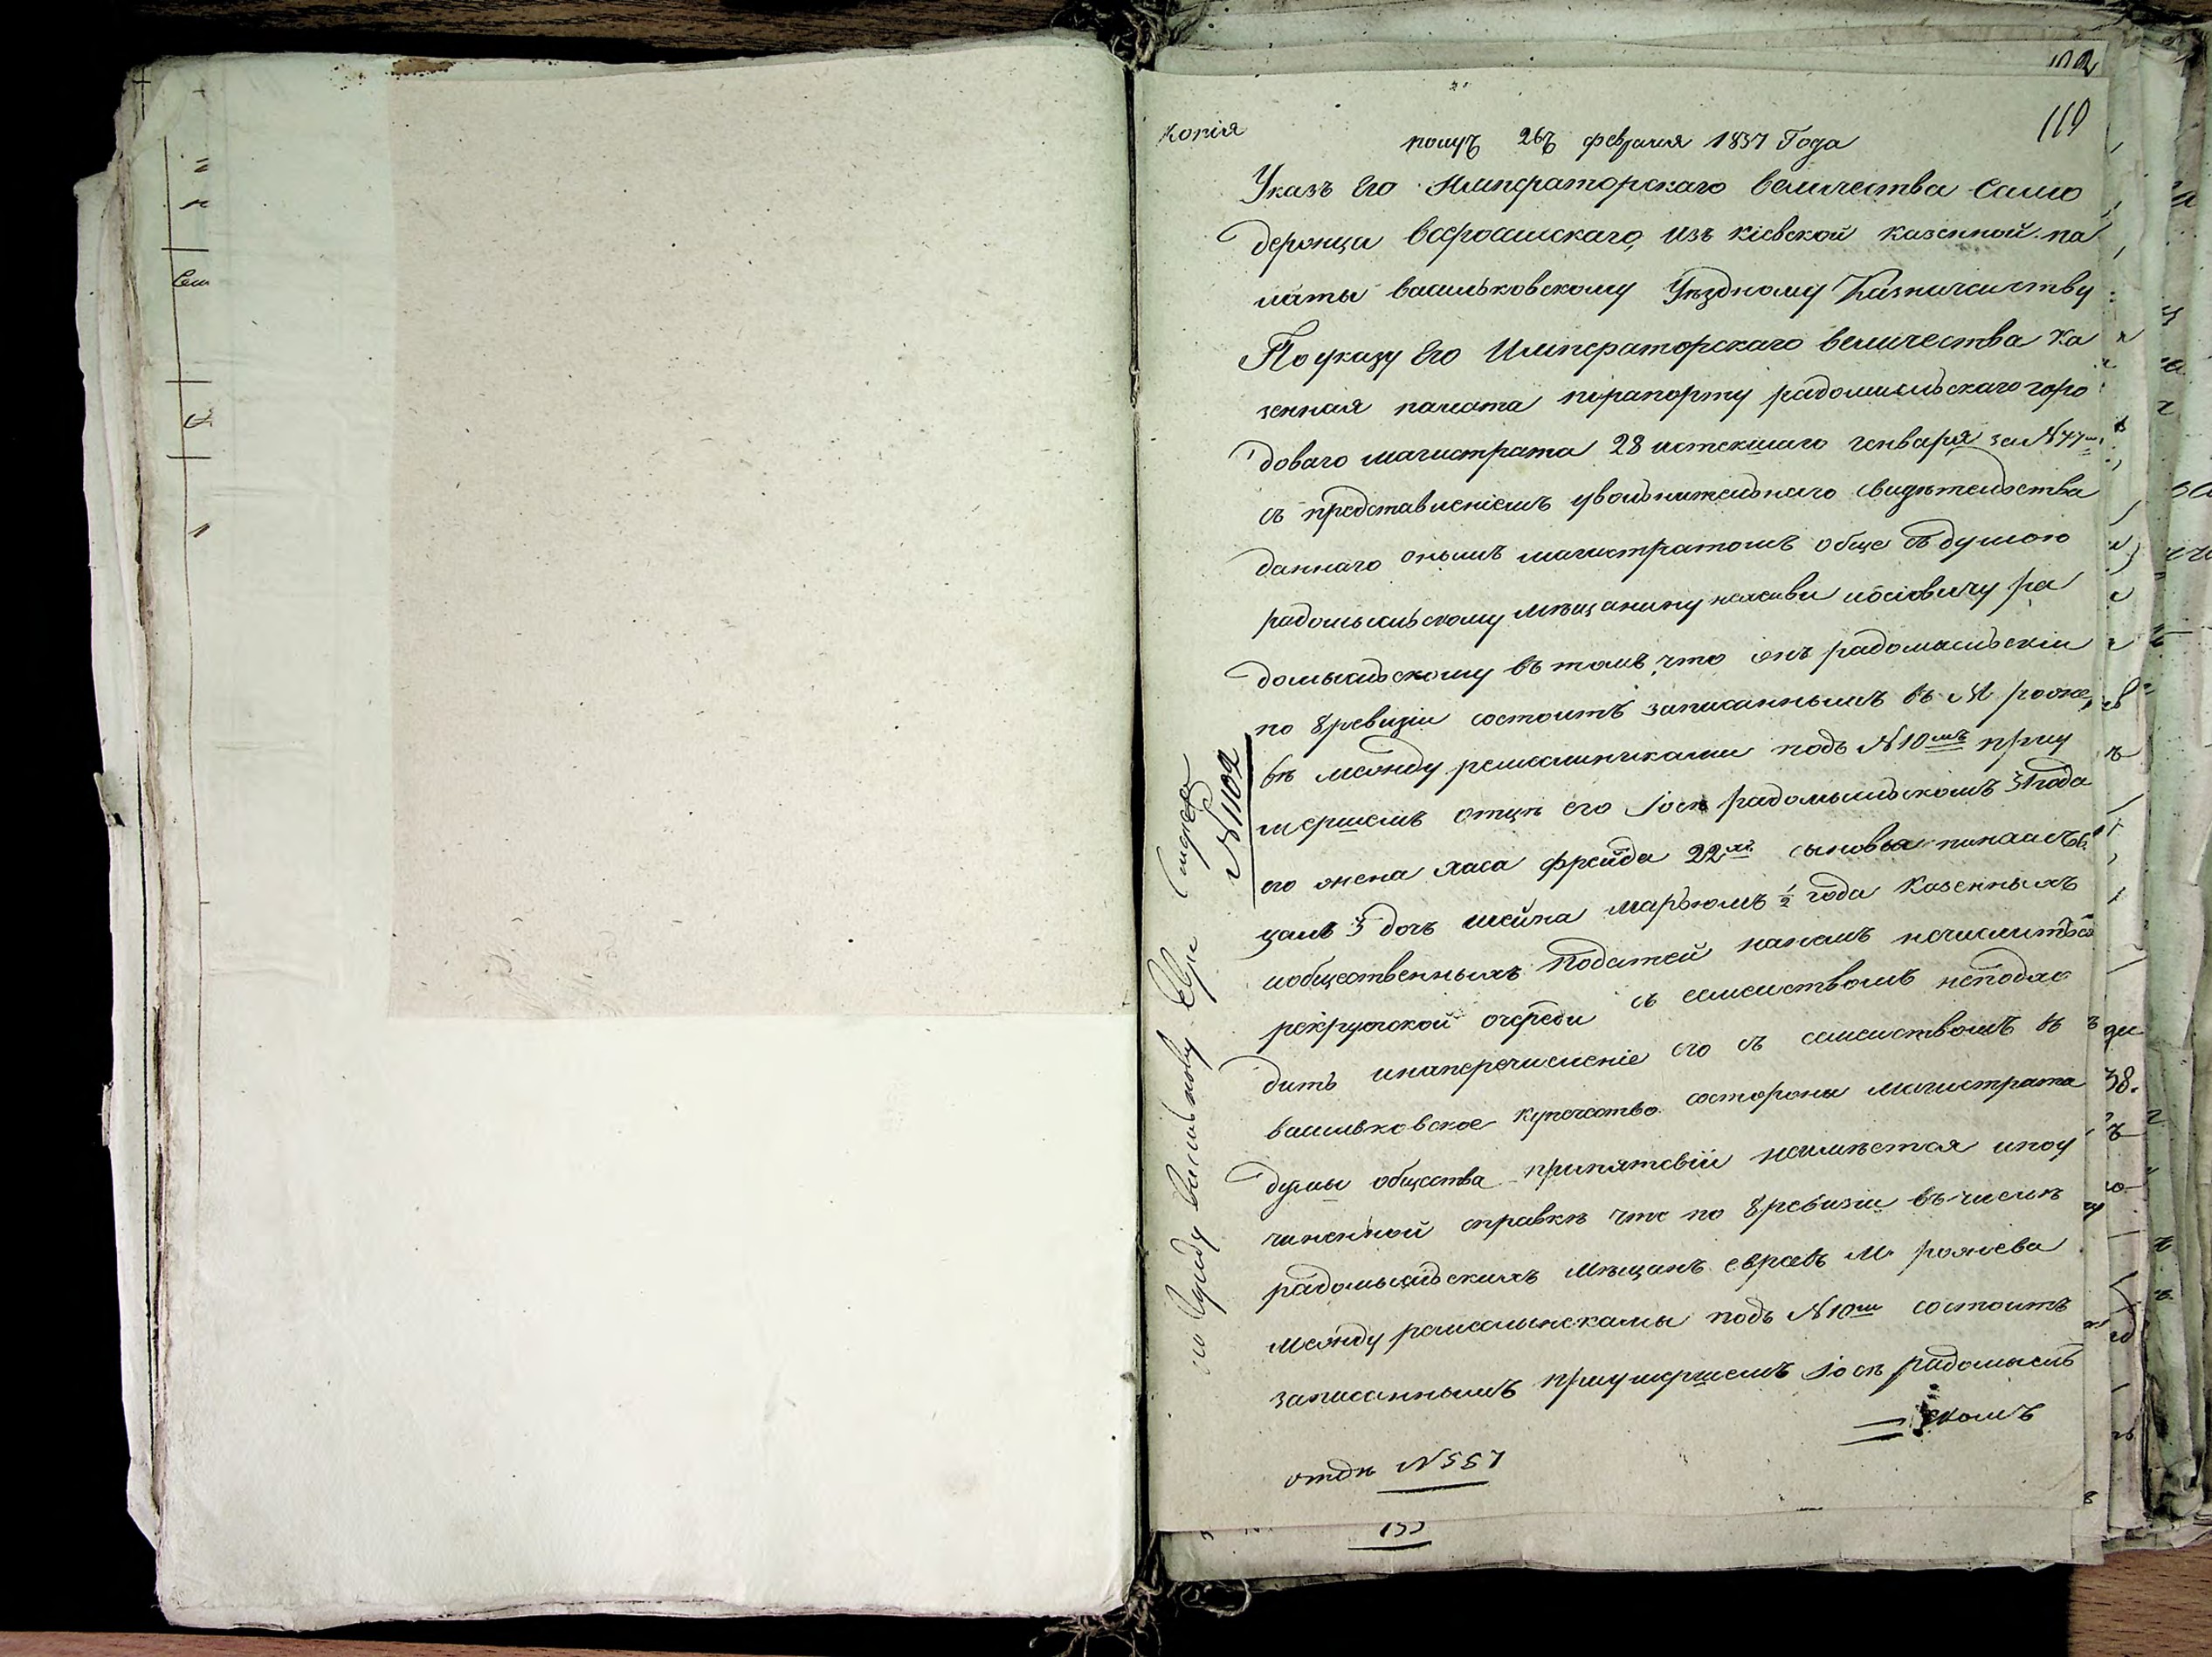 119
Копія
получ 26ъ февраля 1837 Года
Указъ Его Императорскаго величества Само
держца всероссискаго, изъ кіевской казенной па
латы васильковскому Уѣздному Казначеиству
По указу Его Императорскаго величества Ка
зенная палата порапорту радомисльскаго горо
доваго магистрата 28 истекшаго генваря за N 77
съ представленіемъ увольнительнаго свидѣтельства
даннаго онымъ магистратомъ обще съ думою
радомысльскому мѣщанину иосіовичу ра
домысльскому въ томъ, что онъ радомысльскіи
по 8 ревизіи состоитъ записаннымъ въ М роже,
вѣ между ремеслениками подъ N 10мъ приу
мершемъ отцѣ его Іосѣ радомысльскомъ 31 года
его жена хаса фрейда 22хъ сыновья
3 дочъ шейна марьюмъ 1/2 года казенныхъ
иобщественныхъ податей нанемъ нечислитьса
рекрутской очереди съ семеиствомъ неподхо
дитъ инаперечисленіе его съ семеиствомъ въ
васильковское купечество состороны магистрата
думы общества припятствіи неимѣется ипоу
чиненной справкѣ что по 8 ревизіи въ числѣ
радомысльскихъ мѣщанъ евреевъ М рожева
между ремеслинекамы подъ N 10м состоитъ
записаннымъ приумершемъ Іосѣ радомысль
скомъ
отдѣ N 557
N 1102